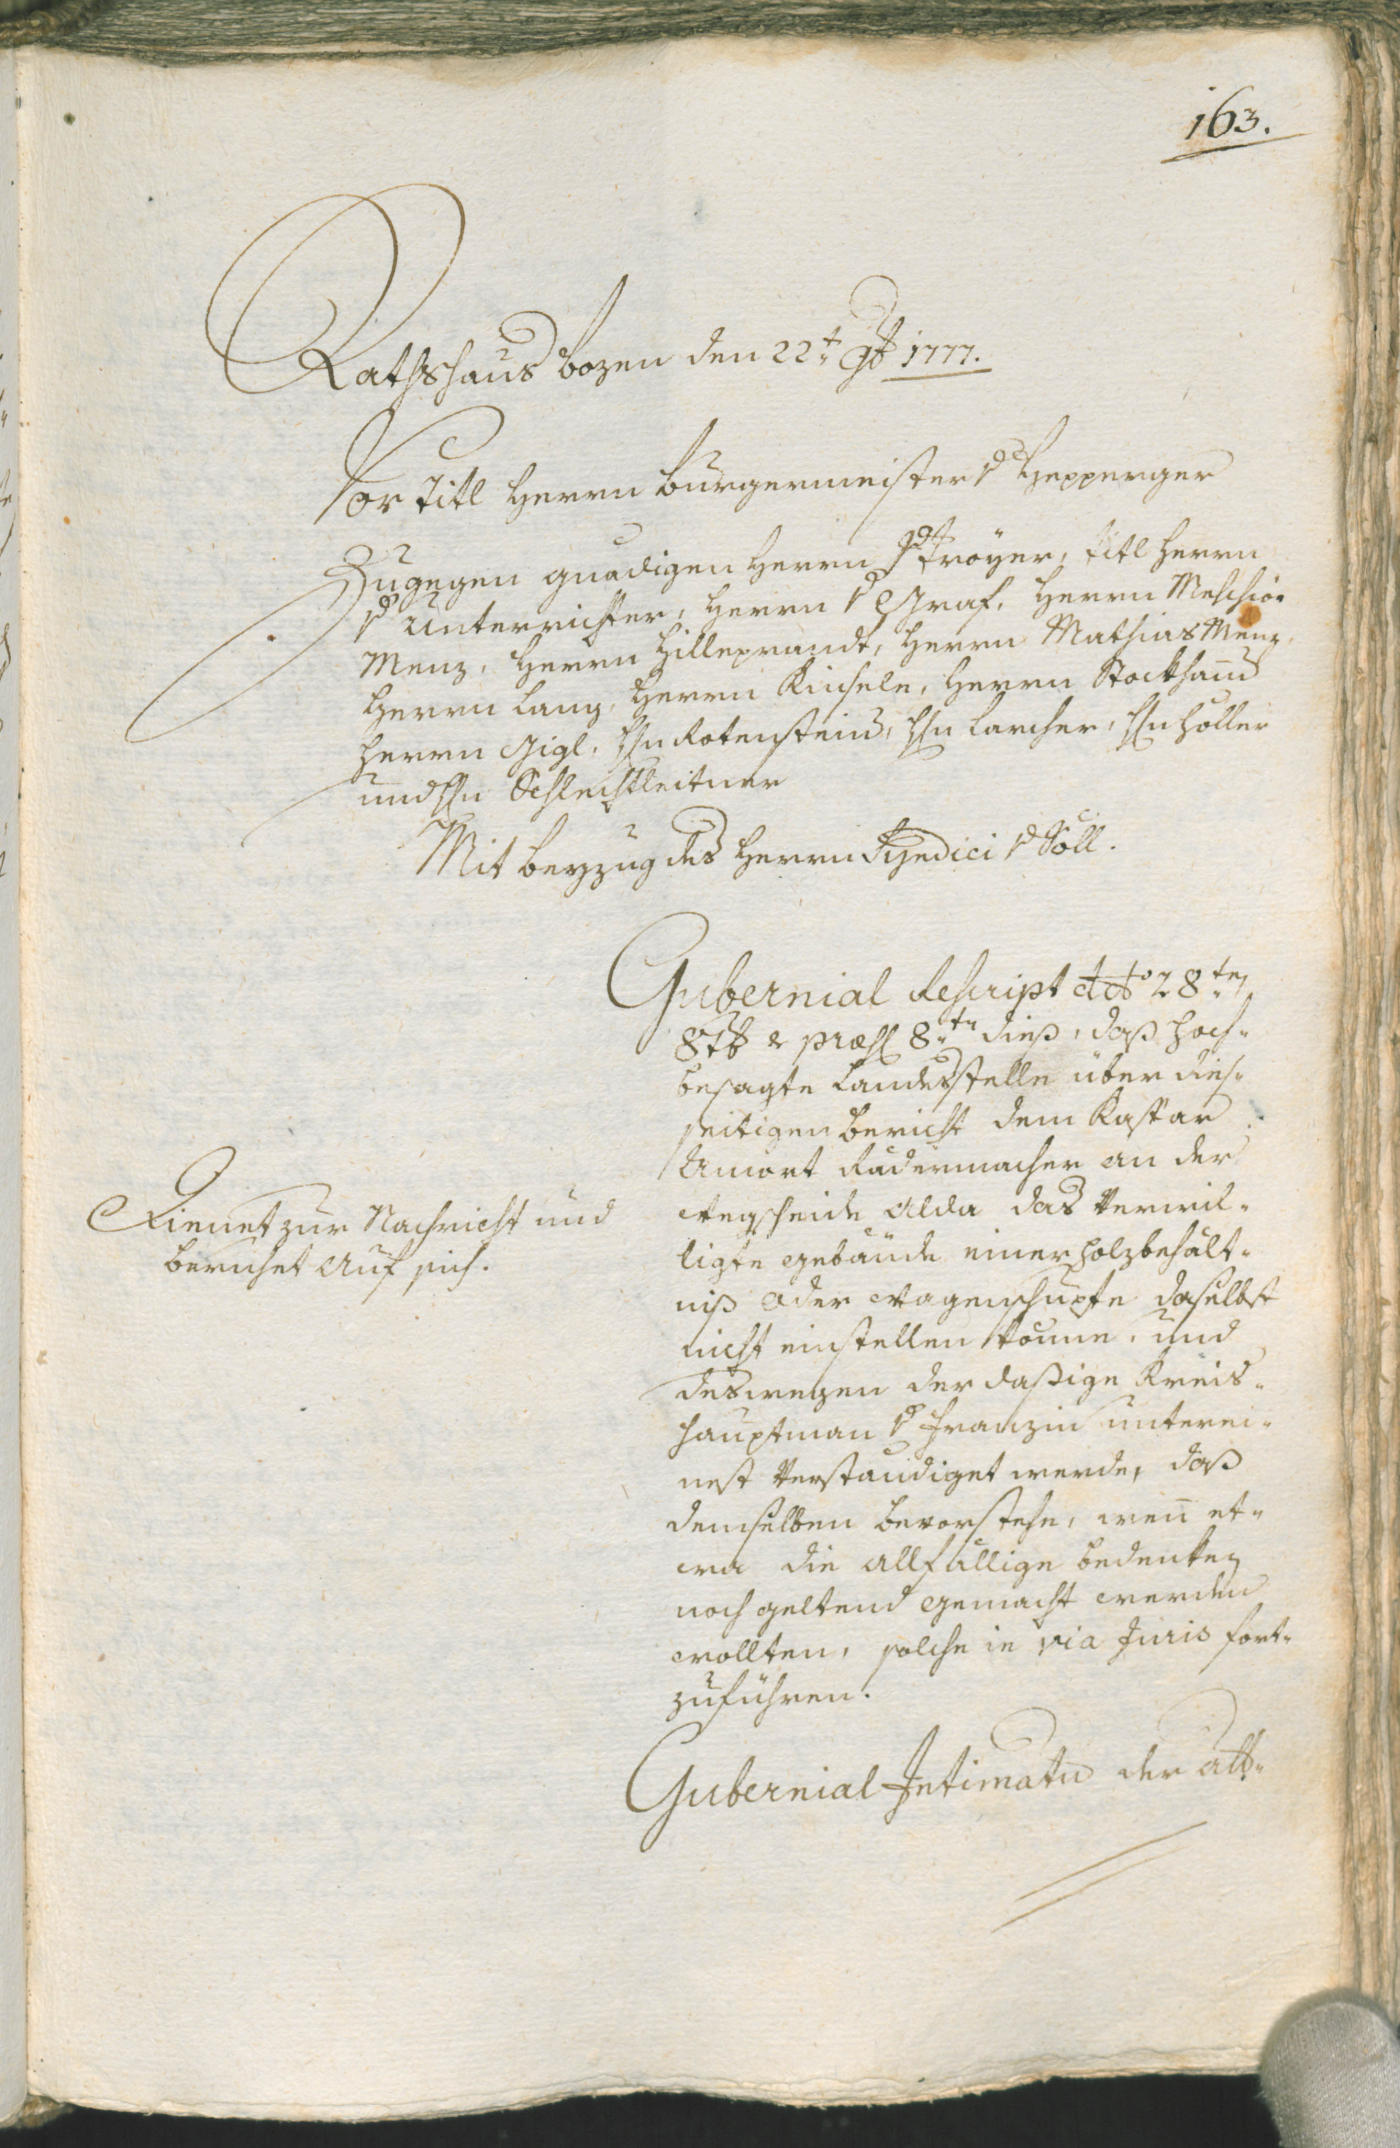 163.
Rathshaus Bozen den 22t 9b 1777.
Vor Titl Herrn Burgermeister v Hepperger
Zugegen gnädigen Herrn v Troyer, titl Herrn
v Unterrichter, Herrn v Graf, Herrn Melchior
Menz, Herrn Hilleprandt, Herrn Mathias Menz,
Herrn Lang, Herrn Kinsele, Herrn Stockhaus
Herrn Gigl, Hn Rotenstein, Hn Larcher, Hn Holler
und Hn Schlechtleitner
Mit beyzug des Herrn Syndici v Söll.
Gubernial Rescript ddto 28ten
8tb & præs 8ten dieß, daß hoch-
besagte Landesstelle über dies-
seitigen Bericht dem Kaspar
Amort Rädermacher an der
Wegscheide alda das Verwil-
ligte gebäude einer holzbehält-
niß oder Wagenschupfe daselbst
nicht einstellen könne, und
deswegen der dasige Kreis-
hauptman v Franzin unterei-
nest Verständiget werde, daß
demselben bevorstehe, wen̄ et-
wa die allfällige bedenken
noch geltend gemacht werden
wollten, solche in via Juris fort-
zuführen.
Dienet zur Nachricht und
beruhet auf sich.
Gubernial Intimatum der all-